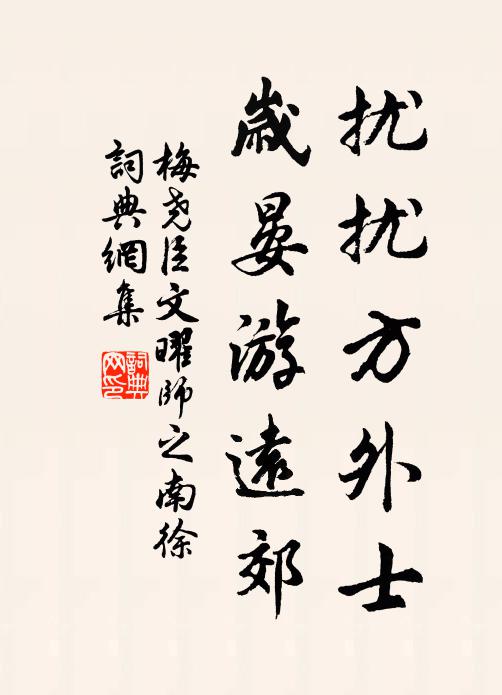 扰扰方外士
歲晏游遠郊
梅尧臣文曜师之南徐
詞典網集
詞典網印